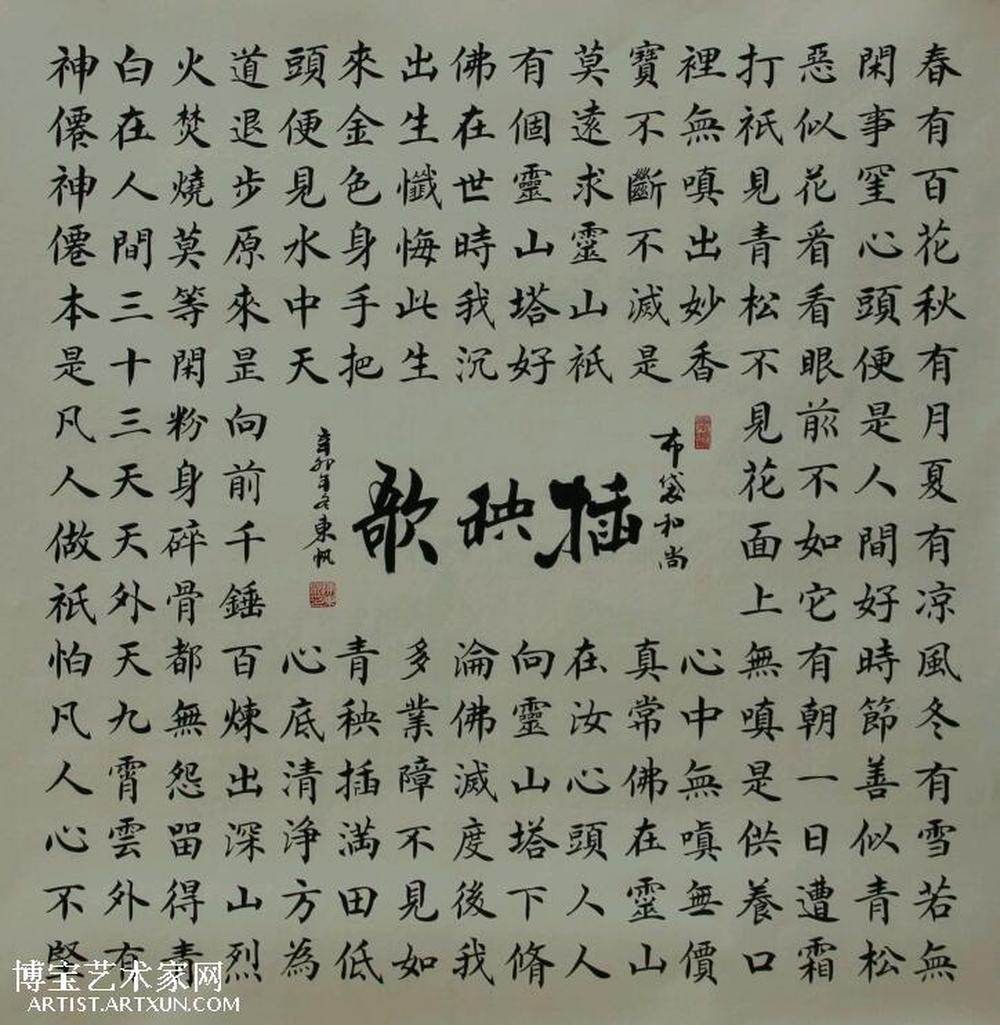 春有百花秋有月夏有凉風冬有雪若無
閑事罣心頭便是人間好時節善似青松
惡似花看看眼歬不如它有朝一日遭霜
打祇見青松不見花面上無嗔是供養口
裡無嗔出妙香心中無嗔無價
寶不斷不滅是真常佛在靈山
莫遠求靈山祇在汝心頭人人
有個靈山塔好向靈山塔下脩
佛在世時我沉淪佛滅度後我
出生懺悔此生多業障不見如
來金色身手把青秧插滿田低
頭便見水中天心底清淨方為
道退步原來昰向前千錘百煉出深山烈
火焚燒莫等閑粉身碎骨都無怨留得青
白在人間三十三天天外天九霄雲外有
神僊神僊本是凡人做祇怕凡人心不堅
布袋和尚
插秧歌
辛卯年冬東帆
博宝艺术家网
ARTIST.ARTXUN.COM